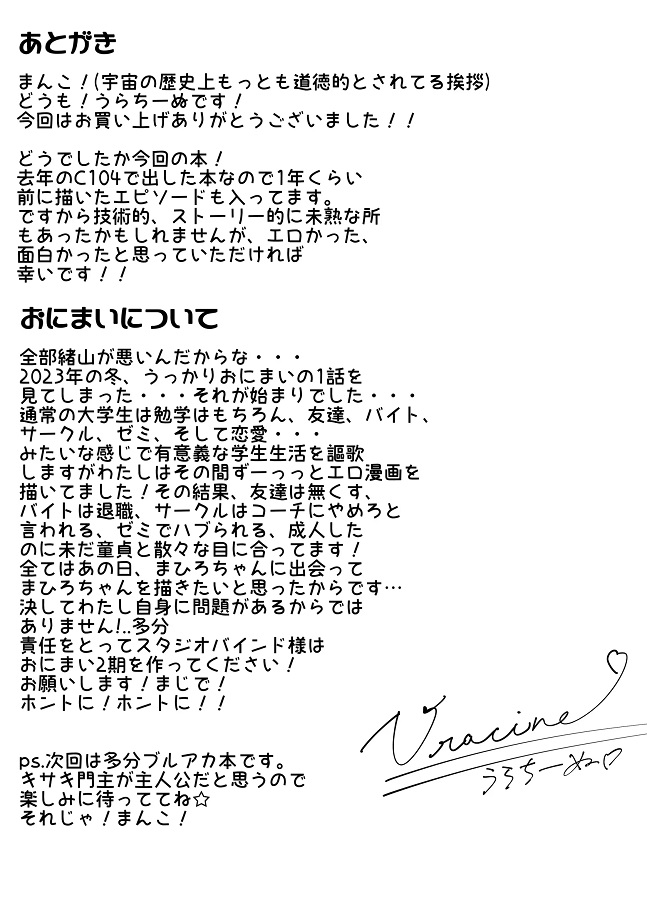 あとがき
まんこ！(宇宙の歴史上もっとも道徳的とされてる挨拶)
どうも！うらちーぬです！
今回はお買い上げありがとうございました！！
どうでしたか今回の本！
去年のC104で出した本なので1年くらい
前に描いたエピソードも入ってます。
ですから技術的、ストーリー的に未熟な所
もあったかもしれませんが、エロかった、
面白かったと思っていただければ
幸いです！！
おにまいについて
全部緒山が悪いんだからな・・・
2023年の冬、うっかりおにまいの1話を
見てしまった・・・それが始まりでした・・・
通常の大学生は勉学はもちろん、友達、バイト、
サークル、ゼミ、そして恋愛・・・
みたいな感じで有意義な学生生活を謳歌
しますがわたしはその間ずーっっとエロ漫画を
描いてました！その結果、友達は無くす、
バイトは退職、サークルはコーチにやめろと
言われる、ゼミでハブられる、成人した
のに未だ童貞と散々な目に合ってます！
全てはあの日、まひろちゃんに出会って
まひろちゃんを描きたいと思ったからです…
決してわたし自身に問題があるからでは
ありません!..多分
責任をとってスタジオバインド様は
おにまい2期を作ってください！
お願いします！まじで！
ホントに！ホントに！！
Uracine
うらちーぬ♡
ps.次回は多分ブルアカ本です。
キサキ門主が主人公だと思うので
楽しみに待っててね☆
それじゃ！まんこ！